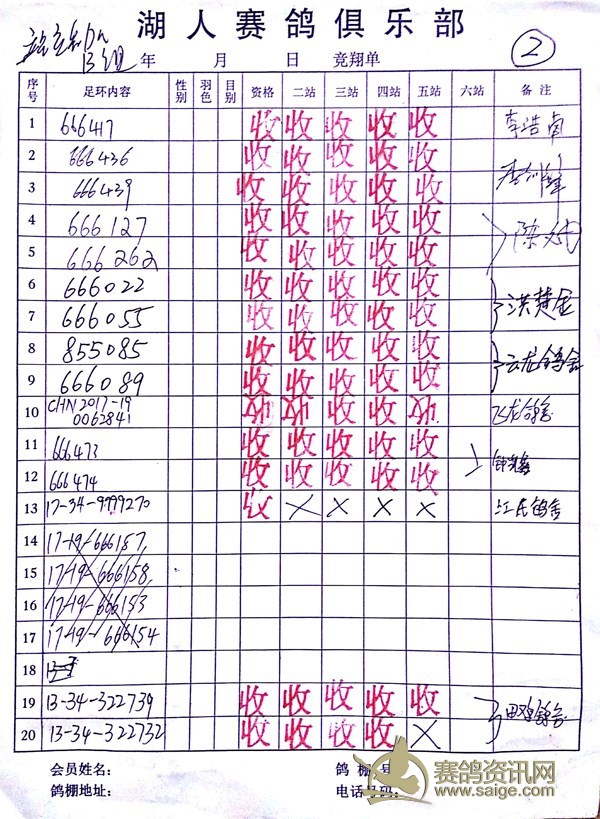 湖人赛鸽俱乐部
B组 年 月 日 竞翔单 ②
序号 足环内容 性别 羽色 目别 资格 二站 三站 四站 五站 六站 备注
1 666417 收 收 收 收 收 李浩南
2 666436 收 收 收 收 收
3 666439 收 收 收 收 收
4 666127 收 收 收 收 收
5 666262 收 收 收 收 收
6 666022 收 收 收 收 收 洪楚金
7 666055 收 收 收 收 收
8 855085 收 收 收 收 收 云龙鸽舍
9 666089 收 收 收 收 收
10 CHN 2017-19 收 收 收 收 收 飞龙鸽舍
0062841
11 666473 收 收 收 收 收
12 666474 收 收 收 收 收
13 17-34-9999270 收 × × × × 江氏鸽舍
14 17-19-666157
15 17-19-666158
16 17-19-666153
17 17-19-666154
18
19 13-34-322739 收 收 收 收 收 田鸡鸽舍
20 13-34-322732 收 收 收 收 ×
会员姓名: 鸽棚号:
鸽棚地址: 电话号码:
赛鸽资讯网
www.saige.com